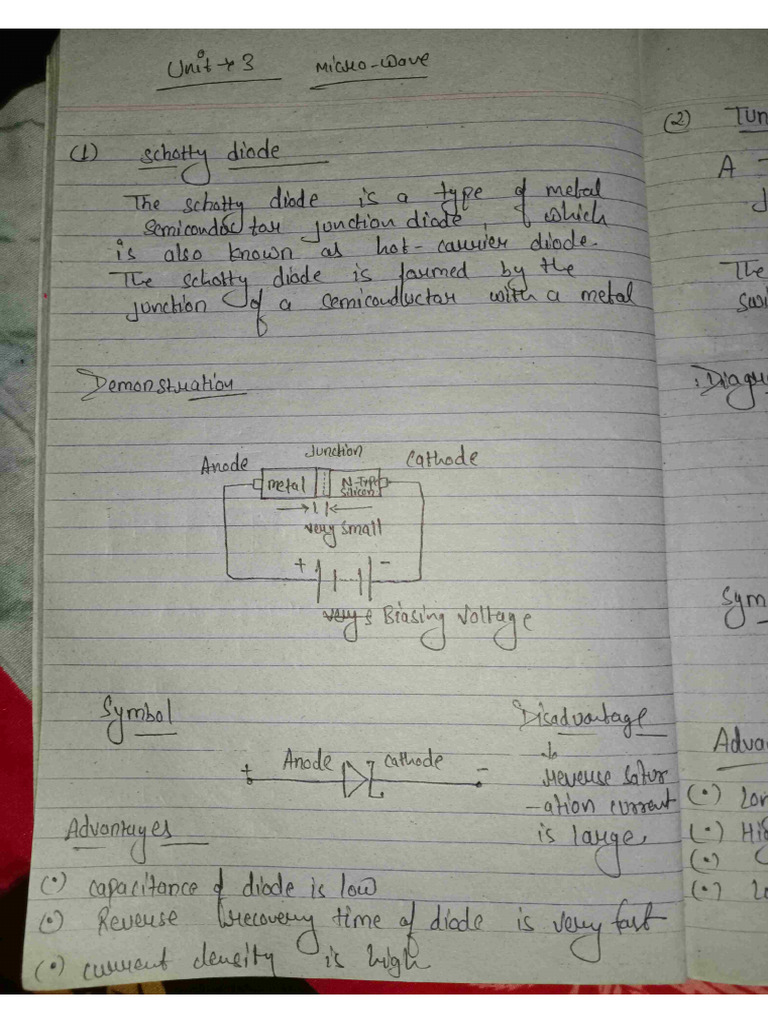 Unit → 3 Micro-wave
(1) schotty diode
The schotty diode is a type of metal
semiconductor junction diode, of which
is also known as hot-carrier diode.
The schotty diode is formed by the
junction of a semiconductor with a metal
Demonstration
Anode Junction Cathode
metal N-Type
silicon
very small
+ -
Biasing Voltage
Symbol
+ Anode Cathode -
Disadvantage
reverse satur
-ation current
is large
Advantages
(•) capacitance of diode is low
(•) Reverse recovery time of diode is very fast
(•) current density is high
(2) Tun
A
The
Diagr
Sym
Adva
(•) Lo
(•) Hi
(•)
(•) Lo